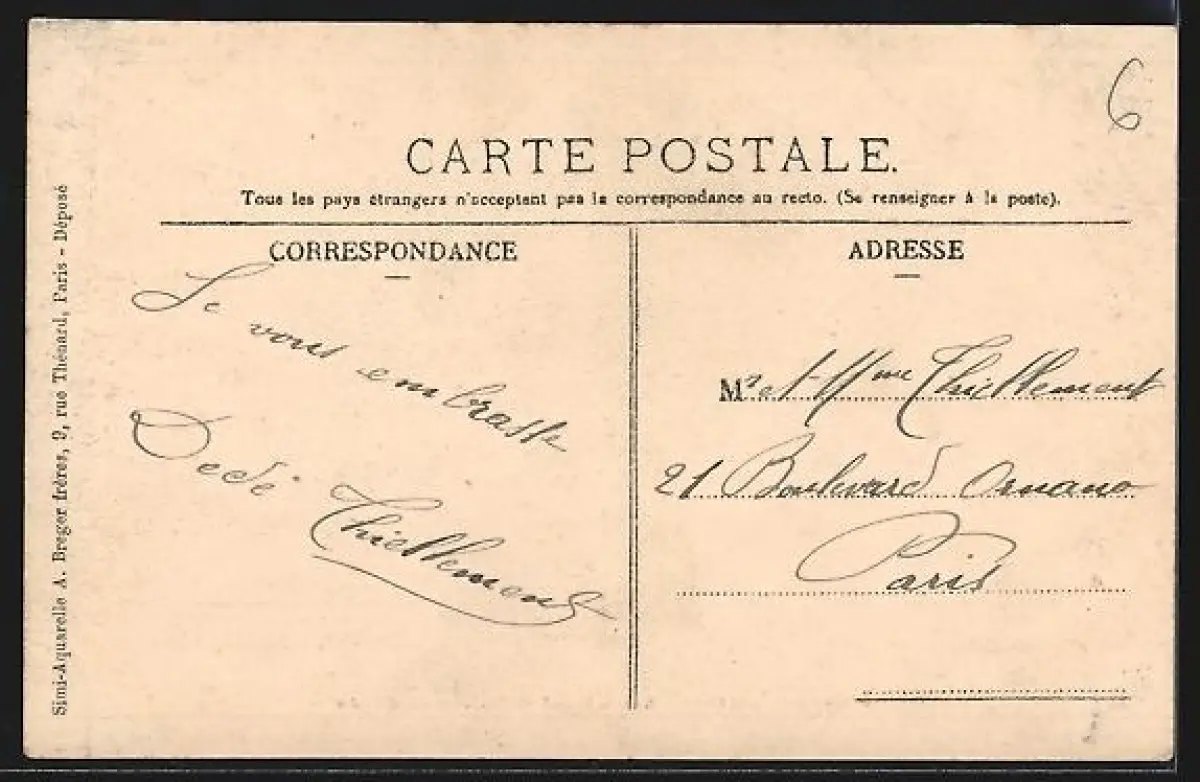 6
CARTE POSTALE.
Tous les pays étrangers n'acceptent pas la correspondance au recto. (Se renseigner à la poste).
CORRESPONDANCE
Je vous embrasse
Dedé Thiellement
ADRESSE
Mr et Mme Thiellement
21 Boulevard Ornano
Paris
Simi-Aquarelle A. Breger frères, 9, rue Thénard, Paris - Déposé